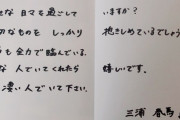 せな 日々を過ごして
切なものを しっかり
も全力で臨んでいる。
な人でいてくれたら
凄い人でいて下さい。
いますか？
抱きしめているでしょう
嬉しいです。
三浦 春馬